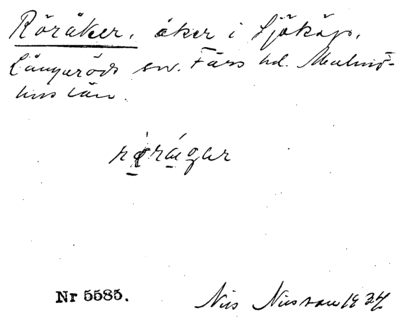 Röråker, åker i Sjököp,
Långaröds sn. Färs hd. Malmö-
hus län.
röråger
Nr 5585.
Nils Nilsson 1934